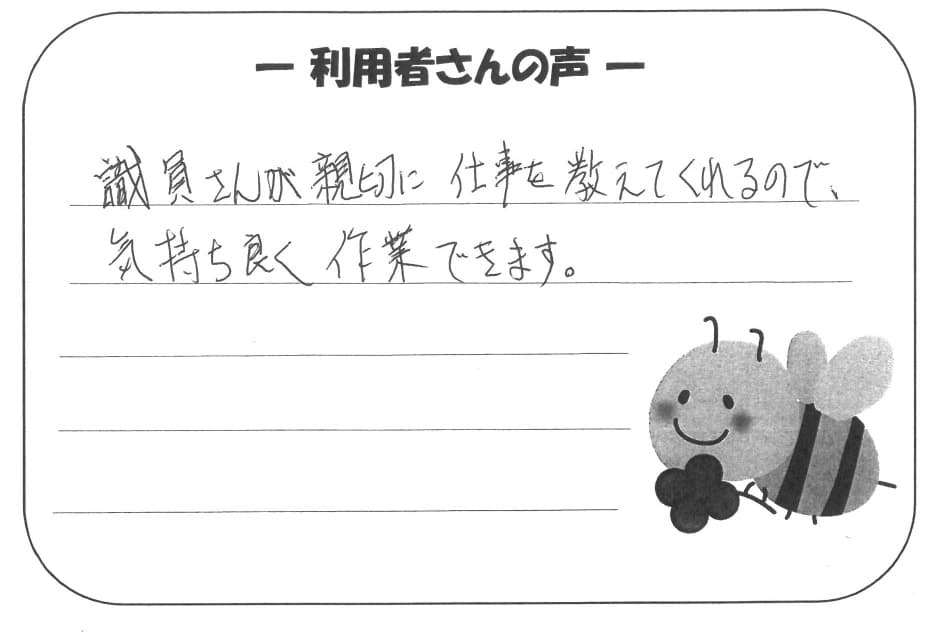 ― 利用者さんの声 ―
識員さんが親切に 仕事を教えてくれるので、
気持ち良く 作業できます。